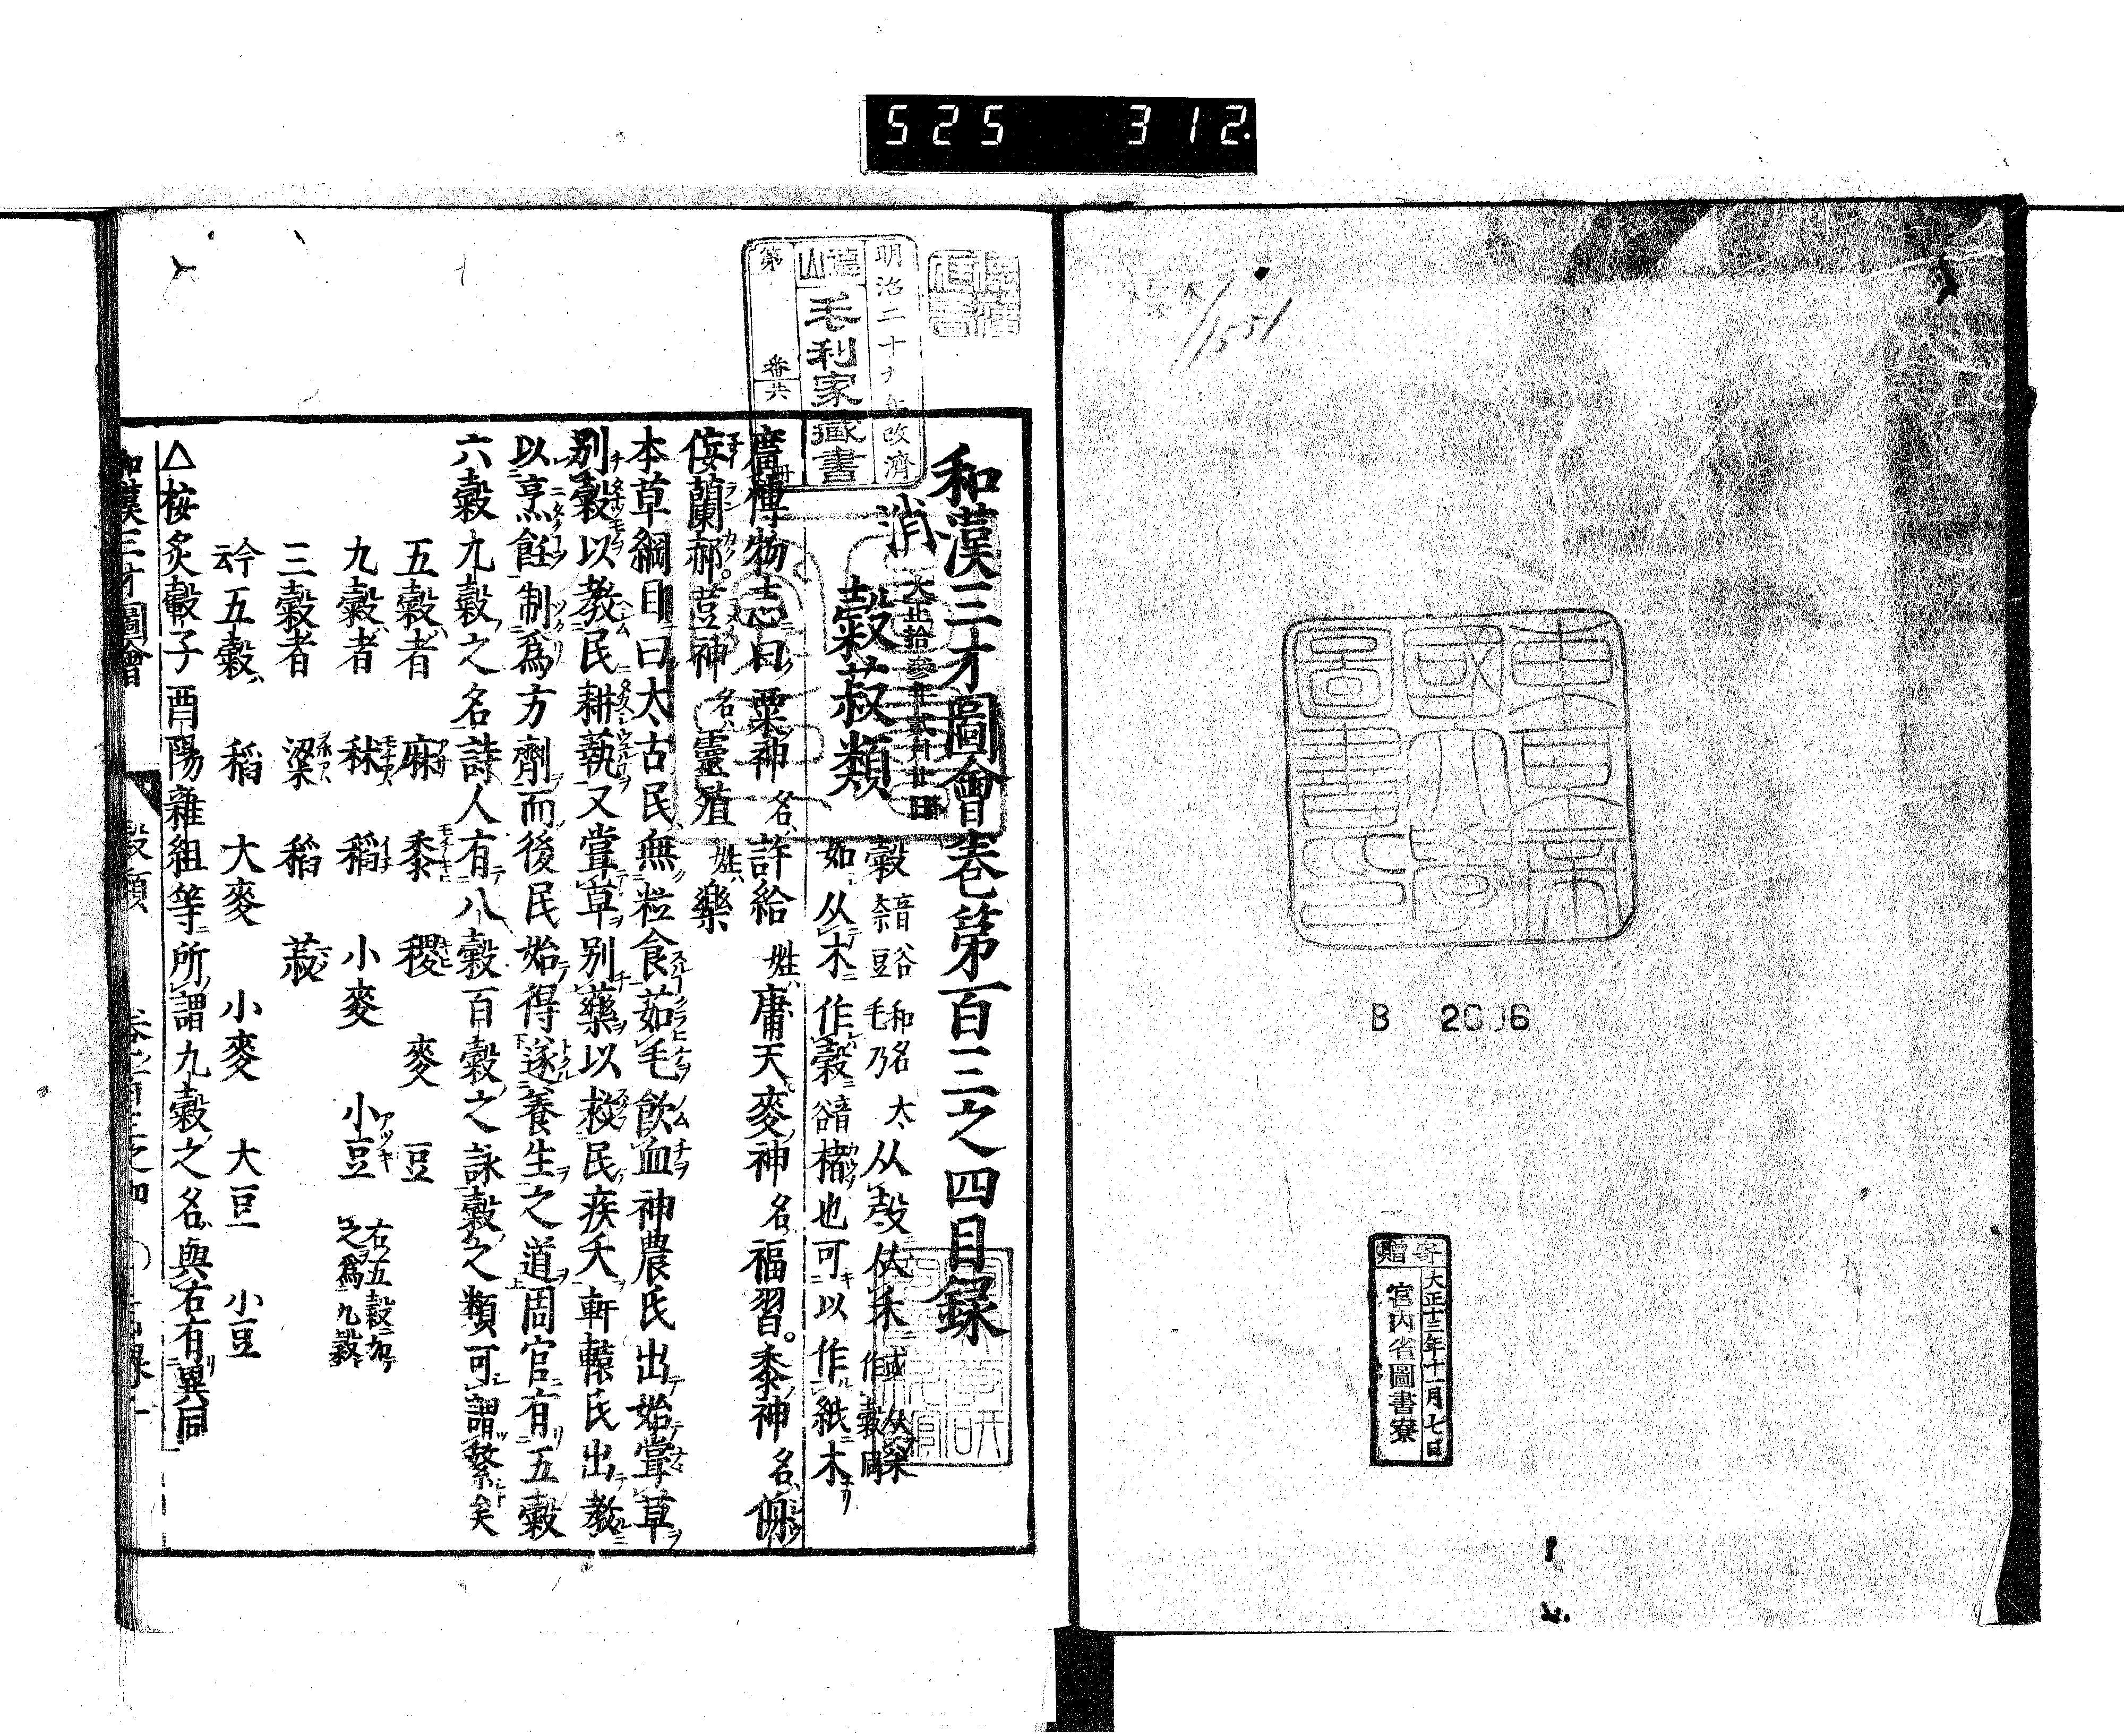 525 312
1551
東京帝國大學圖書之印
B 2006
寄贈
大正十三年十一月七日
宮内省圖書寮
明治二十九年改濟
德山
毛利家藏書
第 番共 冊
消
大正拾參年貳月廿日
和漢三才圖會卷第百三之四目録
穀菽類
穀 音谷 和名太毛乃
从㱿从禾 或从釆作𥽥同
如从木作榖 音谷 楮也可以作紙木
廣博物志曰粟神名許給姓庸天麥神名福習黍神名俳
㑃蘭郝荳神名靈殖姓樂
本草綱目曰太古民無粒食茹毛飲血神農氏出始嘗草
別穀以教民耕蓺又嘗草別藥以救民疾夭軒轅氏出教
以烹飪制爲方劑而後民始得遂養生之道周官有五穀
六穀九穀之名詩人有八穀百穀之詠穀之類可謂繁矣
五穀者 麻 黍 稷 麥 豆
九穀者 秫 稻 小麥 小豆 右五穀加之爲九穀
三穀者 粱 稻 菽
今云五穀 稻 大麥 小麥 大豆 小豆
△按炙轂子酉陽雜組等所謂九穀之名與右有異同
和漢三才圖會 穀類 卷之百三之四